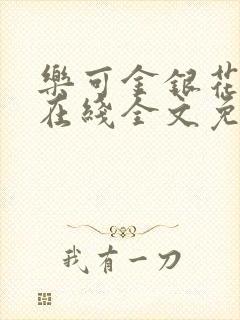 樂可金銀花
在綫全文免
我有一刀